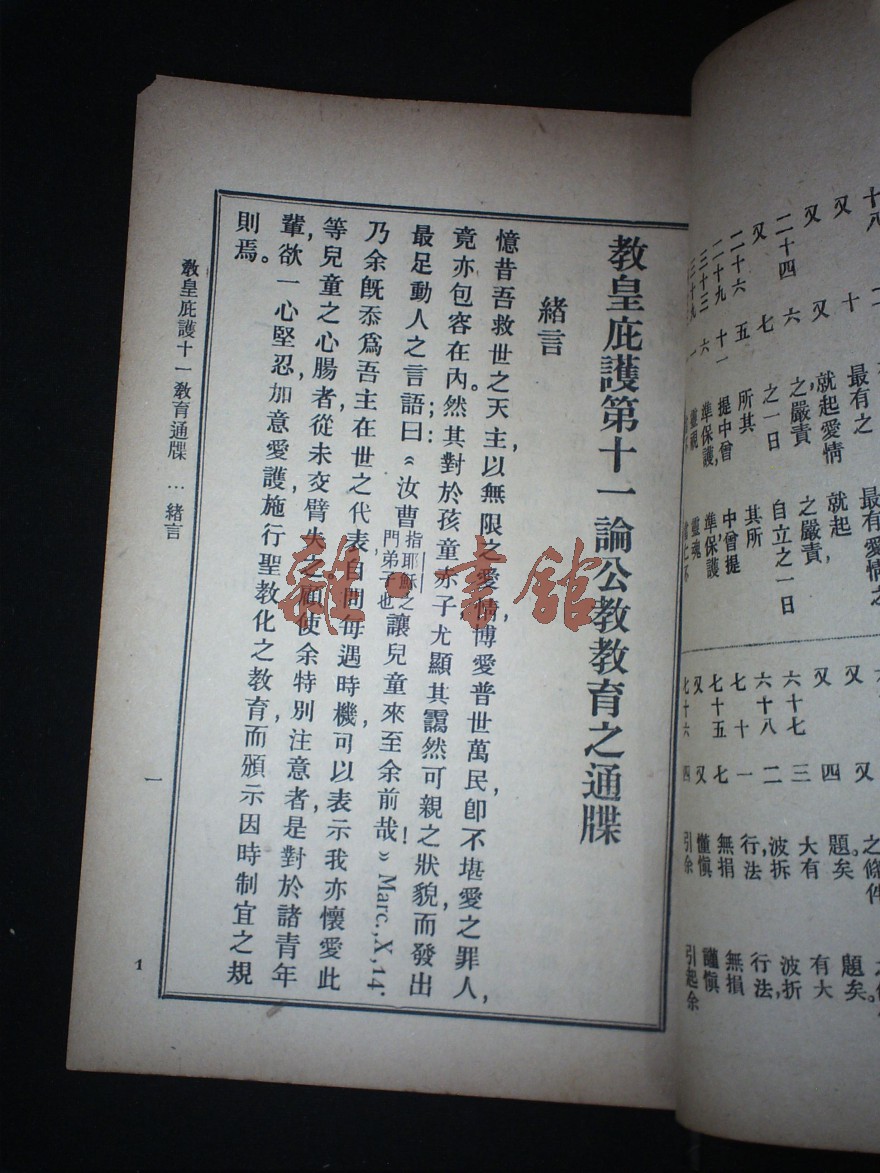 教皇庇護第十一論公教教育之通牒
緒言
憶昔吾救世之天主以無限之愛情，博愛普世萬民，卽不堪愛之罪人，
竟亦包容在內。然其對於孩童赤子尤顯其靄然可親之狀貌，而發出
最足動人之言語曰；：《汝曹指耶穌之門弟子也，讓兒童來至余前哉！》Marc.,X,14.
乃余旣忝爲吾主在世之代表，自問每遇時機，可以表示我亦懷愛此
等兒童之心腸者，從未交臂失之，顧使余特別注意者，是對於諸青年
輩，欲一心堅忍加意愛護，施行聖教化之教育而頒示因時制宜之規
則焉。
教皇庇護十一教育通牒…緒言
一
1
雜·書館
十八
又 十 最有之 就起，
又 又 就起愛情
二十四 六 之嚴責 之嚴責，
又 七 之一日 自立之一日
二十六 五 所其 其所
二十九 十一 提中曾 中曾提
三十三 六 準保護， 準，保護
三十九 一 靈視 靈魂
又 四 題矣。 題矣。
六十七 三 大有 有大
六十八 二 波拆， 波折，
七十 一 行法 行法，
七十五 七 無損 無損
又 又 懂愼 謹愼
七十六 四 引余 引起余